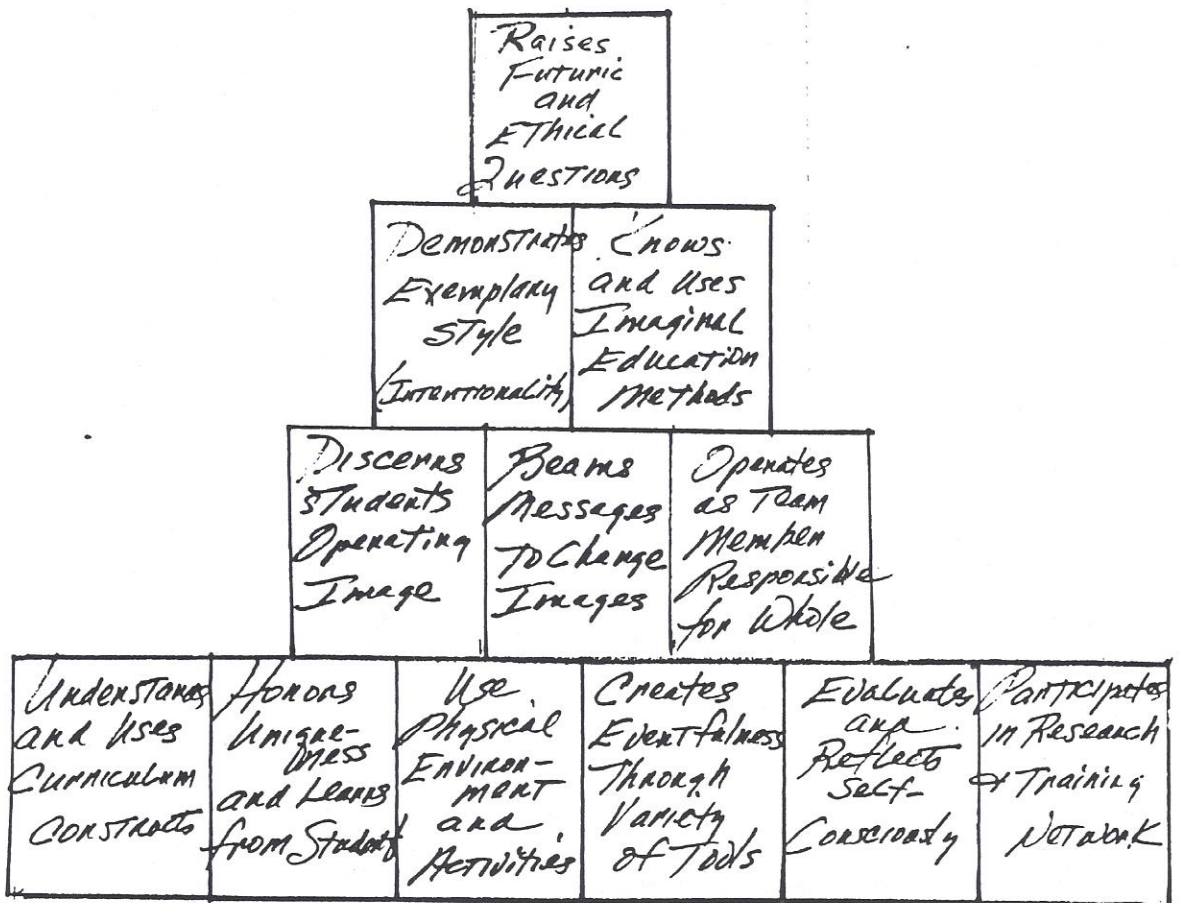 Raises
Futuric
and
Ethical
Questions
Demonstrates
Exemplary
Style
(Intentionality)
Knows
and Uses
Imaginal
Education
Methods
Discerns
Students
Operating
Image
Beams
Messages
To Change
Images
Operates
as Team
Member
Responsible
for Whole
Understands
and Uses
Curriculum
Constructs
Honors
Unique-
ness
and Learns
from Student
Use
Physical
Environ-
ment
and
Activities
Creates
Eventfulness
Through
Variety
of Tools
Evaluates
and
Reflects
Self-
Consciously
Participates
in Research
& Training
Network